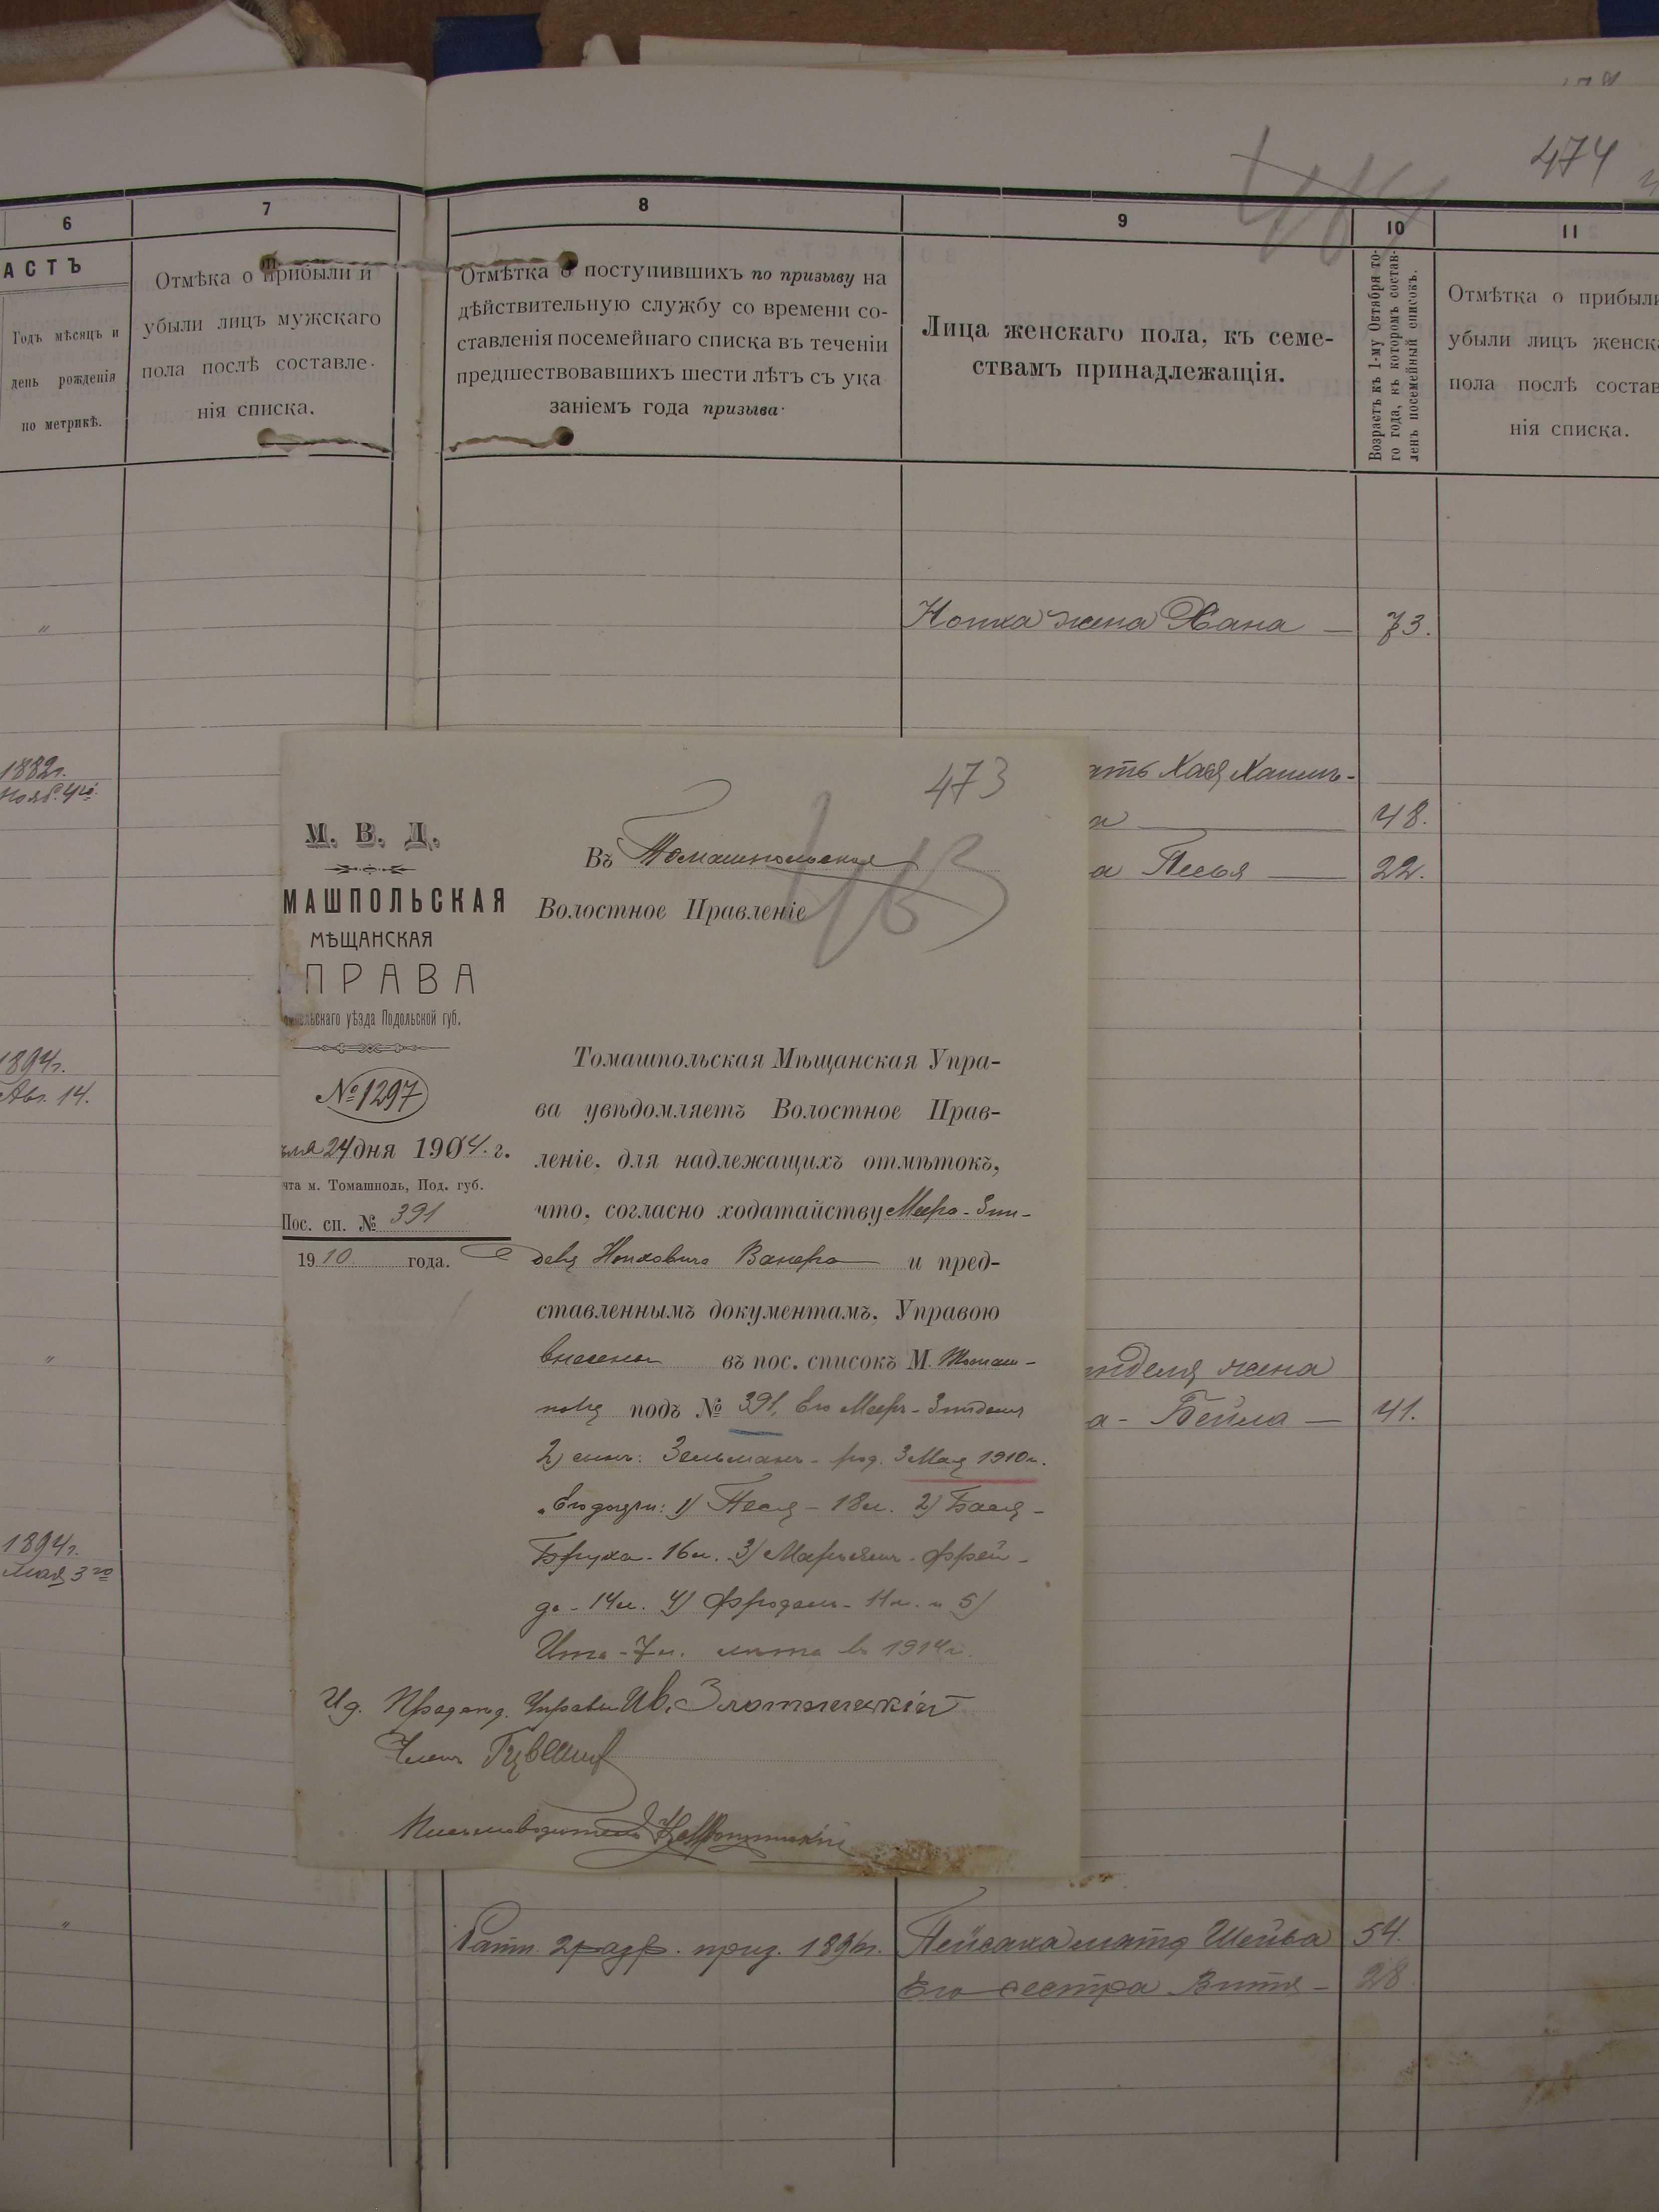 474
6
7
8
9
10
11
АСТЪ
Годъ мѣсяцъ и
день рожденія
по метрикѣ.
Отмѣка о прибыли и
убыли лицъ мужскаго
пола послѣ составле-
нія списка.
Отмѣтка о поступившихъ по призыву на
дѣйствительную службу со времени со-
ставленія посемейнаго списка въ теченіи
предшествовавшихъ шести лѣтъ съ ука
заніемъ года призыва.
Лица женскаго пола, къ семе-
ствамъ принадлежащія.
Возрастъ къ 1-му Октября то-
го года, къ которомъ состав-
ленъ посемейный списокъ.
Отмѣтка о прибыли
убыли лицъ женска
пола послѣ состав
нія списка.
Нопха жена Хана — 73.
1882г.
Нояб. 4го.
ать Хая Хаимъ-
а — 48.
а Песья — 22.
1894г.
Авг. 14.
нделя жена
а - Бейла — 41.
1894г.
Мая 3го
473
М. В. Д.
МАШПОЛЬСКАЯ
МѢЩАНСКАЯ
ПРАВА
польскаго уѣзда Подольской губ.
№ 1297
24 дня 1904. г.
чта м. Томашполь, Под. губ.
Пос. сп. № 391
1910 года.
Въ Томашпольское
Волостное Правленіе
Томашпольская Мѣщанская Упра-
ва увѣдомляетъ Волостное Прав-
леніе, для надлежащихъ отмѣтокъ,
что, согласно ходатайству Меера-Зин-
деля Нопховича Вакера и пред-
ставленнымъ документамъ, Управою
внесены въ пос. списокъ М. Томаш-
поля подъ № 391, Его Меера-Зинделя
2) сынъ: Зельманъ - род. 3 Мая 1910г.
Его дочери: 1) Песя - 18 л. 2) Бася-
Бруха - 16 л. 3) Марьямъ - Фрей-
да - 14 л. 4) Фродель - 11 л. и 5)
Ита - 7 л. лѣта въ 1914г.
И д. Предсѣд. Управы Ив. Злотницкій
Членъ
Письмоводитель
Ратн. 2 разр. приз. 1896г.
Пейсаха мать Шейва 54.
Его сестра Витя — 28.